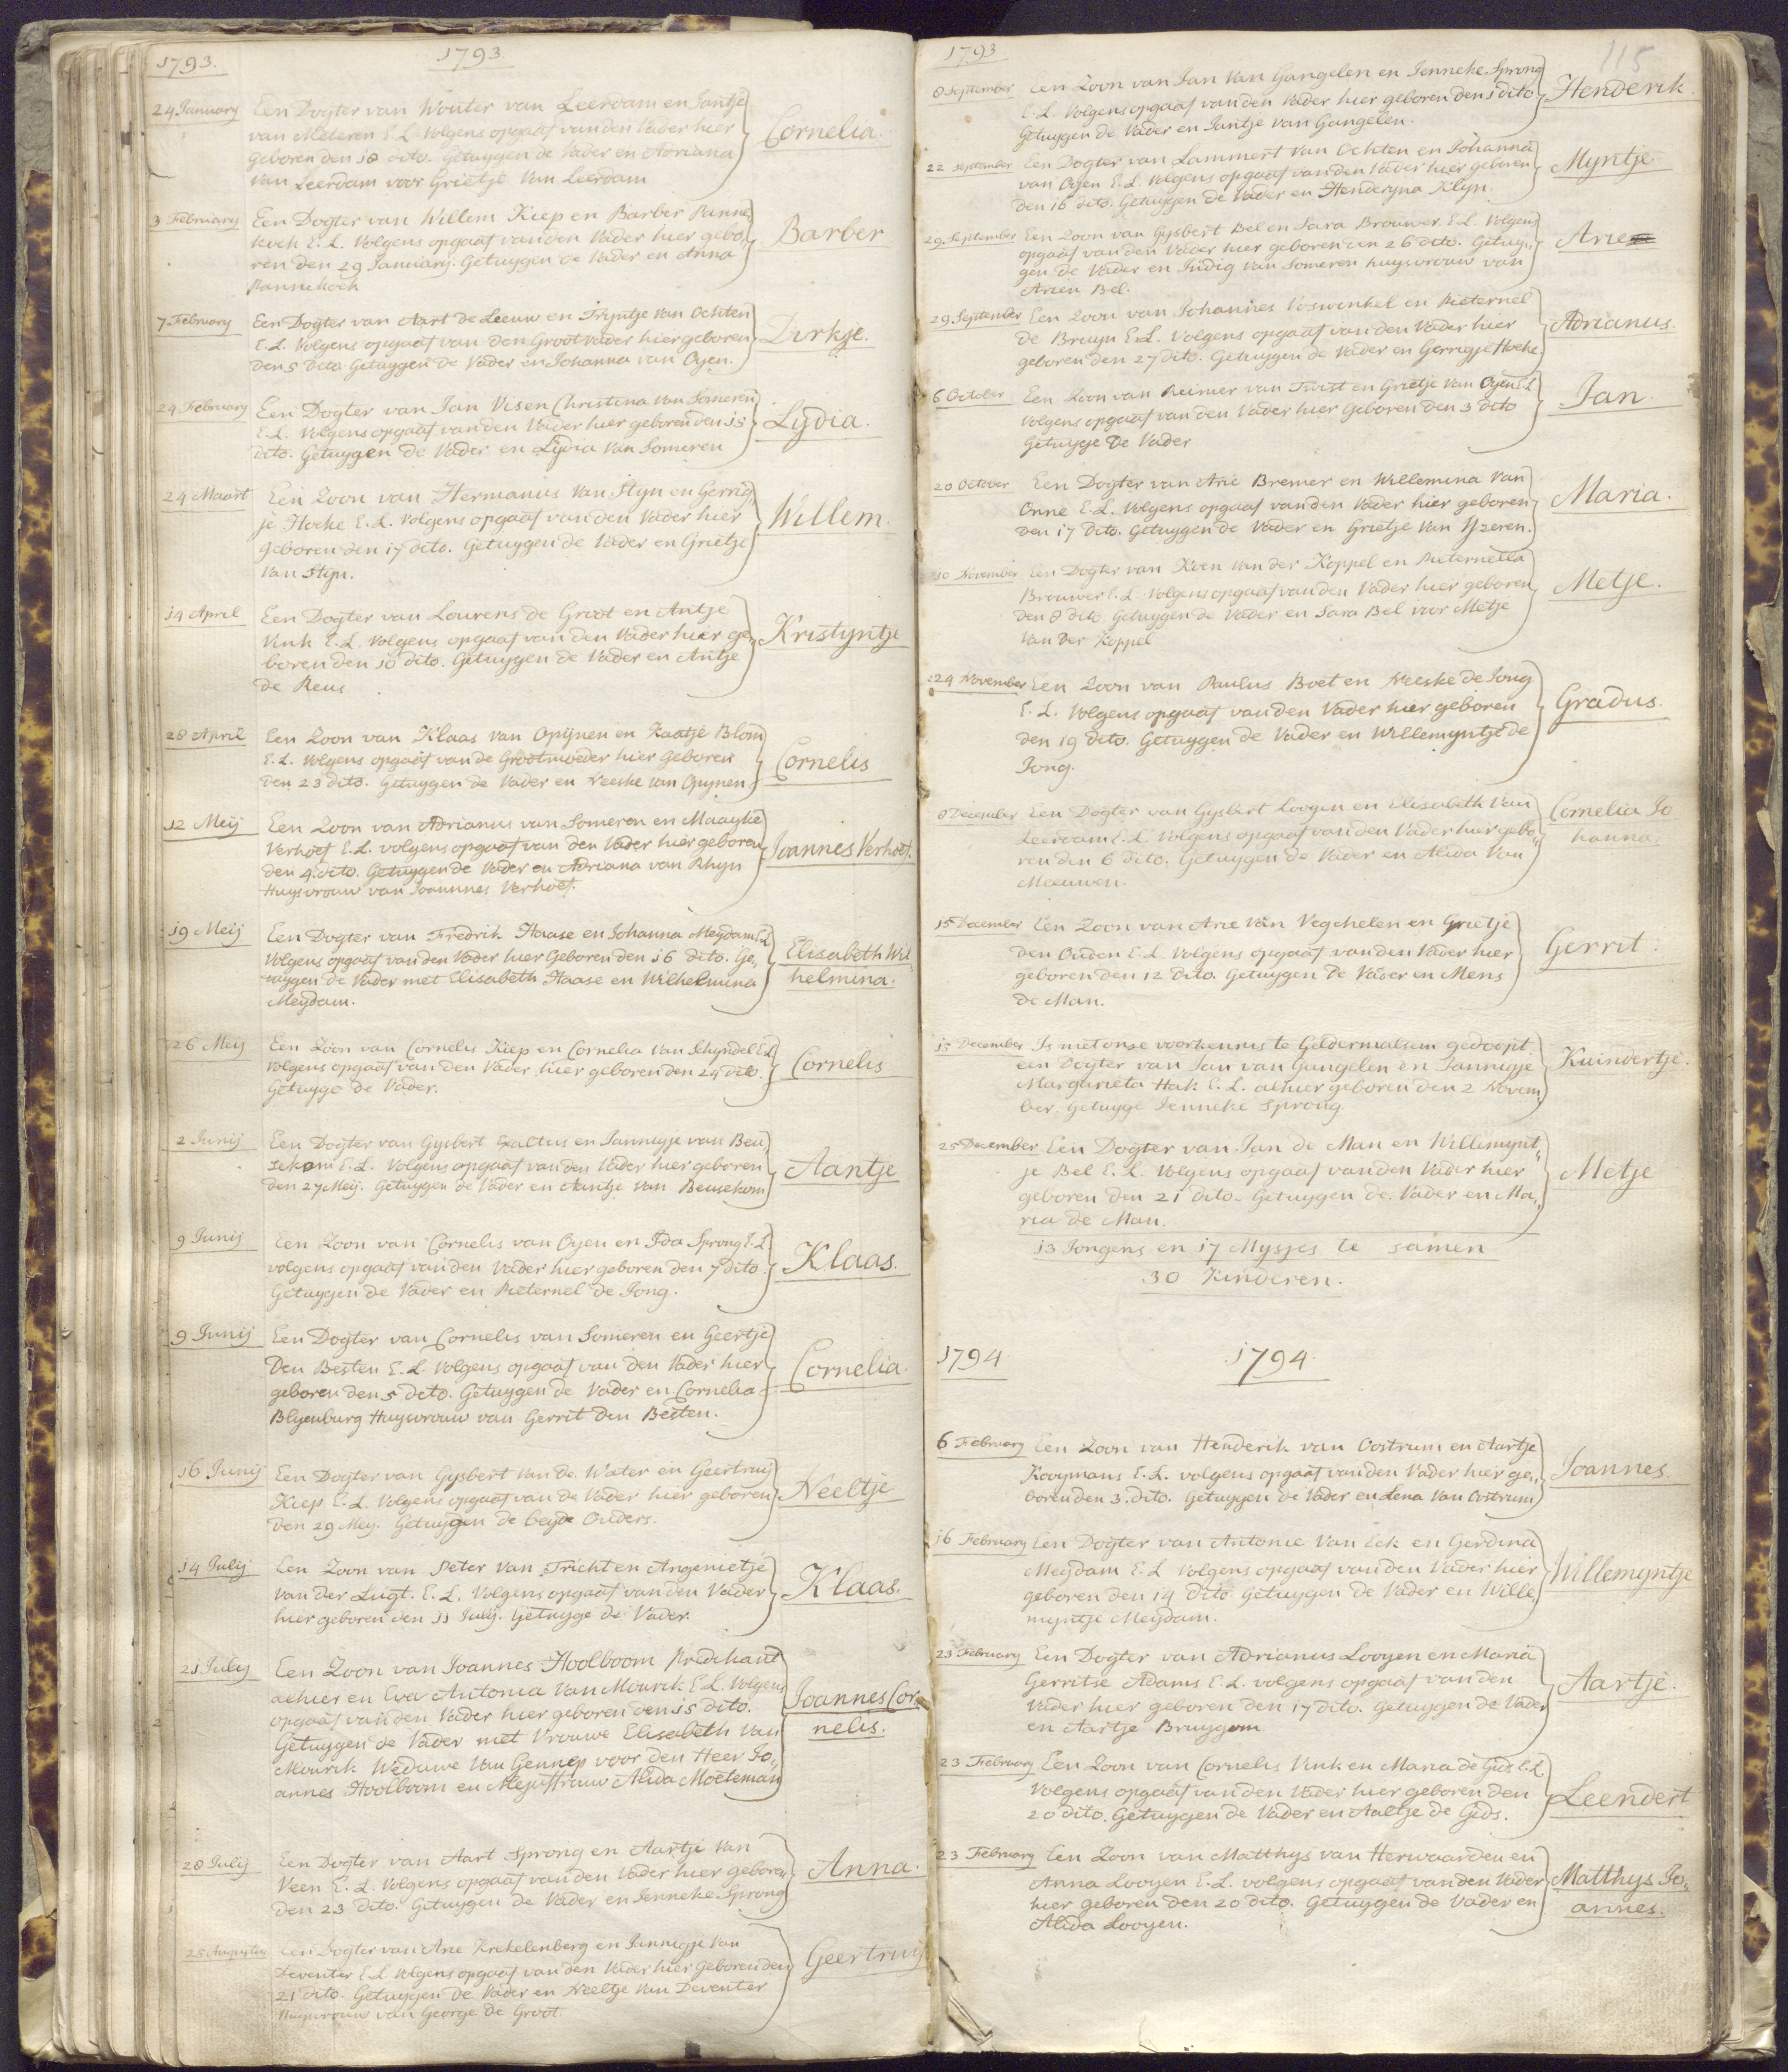 1793.
1793
24 January Een Dogter van Wouter van Leerdam en Jantje
van Meteren E.L. Volgens opgaaf van den Vader hier
Geboren den 18 dito. Getuygen de Vader en Adriana
van Leerdam voor Grietje van Leerdam
Cornelia.
3 February Een Dogter van Willem Kiep en Barber Panne„
koek E.L. Volgens opgaaf van den Vader hier gebo„
ren den 29 January. Getuygen de Vader en Anna
Pannekoek
Barber
7 February Een Dogter van Aart de Leeuw en Tryntje van Ochten
E.L. Volgens opgaaf van den Grootvader hier geboren
den 5 dito. Getuygen de Vader en Johanna van Oyen.
Dirkje.
24 February Een Dogter van Jan Visen Christina van Someren
E.L. Volgens opgaaf van den Vader hier geboren den 15
dito. Getuygen de Vader en Lydia van Someren
Lydia.
24 Maart Een Zoon van Hermanus van Styn en Gerrig„
je Hoeke E.L. Volgens opgaaf van den Vader hier
geboren den 17 dito. Getuygen de Vader en Grietje
van Styn.
Willem.
14 April Een Dogter van Lourens de Groot en Antje
Vink E.L. Volgens opgaaf van den Vader hier ge„
boren den 10 dito. Getuygen de Vader en Antje
de Reus
Kristyntje
28 April Een Zoon van Klaas van Opijnen en Kaatje Blom
E.L. Volgens opgaaf van de Grootmoeder hier Geboren
den 23 dito. Getuygen de Vader en Neeske van Opynen
Cornelis
12 Meij Een Zoon van Adrianus van Someren en Maayke
Verhoef E.L. volgens opgaaf van den Vader hier geboren
den 4. dito. Getuygen de Vader en Adriana van Rhyn
Huysvrouw van Joannnes Verhoef.
Joannes Verhoef.
19 Meij Een Dogter van Fredrik Haase en Johanna Meydam E.L
Volgens opgaaf van den Vader hier Geboren den 16 dito. Ge„
tuygen de Vader met Elisabeth Haase en Wilhelmina
Meydam.
Elisabeth Wil
helmina.
26 Meij Een Zoon van Cornelis Kiep en Cornelia van Schyndel E.L
Volgens opgaaf van den Vader hier geboren den 24 dito
Getuyge de Vader.
Cornelis
2 Junij Een Dogter van Gysbert Exaltus en Jannigje van Beu„
sekom E.L. Volgens opgaaf van den Vader hier geboren
den 27 Meij. Getuygen de Vader en Aantje van Beusekom
Aantje
9 Junij Een Zoon van Cornelis van Oyen en Ida Sprong E.L
volgens opgaaf van den Vader hier geboren den 7 dito.
Getuygen de Vader en Pieternel de Jong.
Klaas.
9 Junij Een Dogter van Cornelis van Someren en Geertje
Den Besten E.L. Volgens opgaaf van den Vader hier
geboren den 5 dito. Getuygen de Vader en Cornelia
Blyenburg Huysvrouw van Gerrit Den Besten.
Cornelia.
16 Junij Een Dogter van Gysbert van de Water en Geertruij
Kiep E.L. Volgens opgaaf van de Vader hier geboren
den 29 Mey. Getuygen de beyde Ouders.
Neeltje
14 Julij Een Zoon van Peter van Tricht en Angenietje
van der Lugt. E.L. Volgens opgaaf van den Vader
hier geboren den 11 July. Getuyge de Vader.
Klaas.
21 July Een Zoon van Joannes Hoolboom Predikant
alhier en Eva Antonia van Mourik E.L. Volgens
opgaaf van den Vader hier geboren den 15 dito.
Getuygen de Vader met Vrouwe Elisabeth van
Mourik Weduwe van Gennep voor den Heer Jo„
annes Hoolboom en Mejuffrouw Alida Moeteman
Joannes Cor„
nelis.
28 Julij Een Dogter van Aart Sprong en Aartje van
Veen E.L. Volgens opgaaf van den Vader hier geboren
den 23 dito. Getuygen de Vader en Jenneke Sprong
Anna.
25 Augustus Een Dogter van Arie Krekelenberg en Jannigje van
Deventer E.L. Volgens opgaaf van den Vader hier Geboren den
21 dito. Getuygen de Vader en Neeltje van Deventer
Huysvrouw van George de Groot
Geertruij
1793
115
8 September Een Zoon van Jan van Gangelen en Jenneke Sprong
E.L. Volgens opgaaf van den Vader hier geboren den 1 dito
Getuygen de Vader en Jantje van Gangelen.
Henderik.
22 September Een Dogter van Lammert van Ochten en Johanna
van Oyen E.L. Volgens opgaaf van den Vader hier geboren
den 16 dito. Getuygen de Vader en Henderyna Klyn.
Myntje.
29 September Een Zoon van Gysbert Bel en Sara Brouwer E.L. Volgens
opgaaf van den Vader hier geboren den 26 dito. Getuy„
gen de Vader en Judig van Someren huysvrouw van
Arien Bel.
Arie
29 September Een Zoon van Johannes Voswinkel en Pieternel
de Bruyn E.L. Volgens opgaaf van den Vader hier
geboren den 27 dito. Getuygen de Vader en Gerrigje Hoeke.
Adrianus.
6 October Een Zoon van Reimer van Twist en Grietje van Oyen E.L
Volgens opgaaf van den Vader hier Geboren den 3 dito
Getuyge De Vader
Jan
20 October Een Dogter van Arie Bremer en Willemina van
Onne E.L. Volgens opgaaf van den Vader hier geboren
den 17 dito. Getuygen de Vader en Grietje van Yzeren.
Maria.
10 November Een Dogter van Koen van der Koppel en Pieternella
Brouwer E.L. Volgens opgaaf van den Vader hier geboren
den 8 dito. Getuygen de Vader en Sara Bel voor Metje
van der Koppel
Metje.
24 November Een Zoon van Paulus Boet en Neeske de Jong
E.L. Volgens opgaaf van den Vader hier geboren
den 19 dito. Getuygen de Vader en Willemyntje de
Jong.
Gradus.
8 December Een Dogter van Gysbert Looyen en Elisabeth van
Leerdam E.L. Volgens opgaaf van den Vader hier gebo„
ren den 6 dito. Getuygen de Vader en Alida van
Meeuwen.
Cornelia Jo
hanna.
15 December Een Zoon van Arie van Vegchelen en Grietje
den Ouden E.L. Volgens opgaaf van den Vader hier
geboren den 12 dito. Getuygen de Vader en Mens
de Man.
Gerrit.
15 December Is met onze voorkennis te Geldermalsem gedoopt
een Dogter van Jan van Gangelen en Jannigje
Margarieta Hak E.L. alhier geboren den 2 Novem„
ber. getuyge Jenneke Sprong.
Kuindertje.
25 December Een Dogter van Jan de Man en Willemynt„
je Bel E.L. Volgens opgaaf van den Vader hier
geboren den 21 dito. Getuygen de Vader en Ma„
ria de Man.
Metje
13 Jongens en 17 Mysjes te samen
30 Kinderen.
1794
1794.
6 February Een Zoon van Henderik van Oostrum en Aartje
Kooymans E.L. volgens opgaaf van den Vader hier ge„
boren den 3. dito. Getuygen de Vader en Lena van Oostrum
Joannes.
16 February Een Dogter van Antonie van Eck en Gerdina
Meydam E.L Volgens opgaaf van den Vader hier
geboren den 14 dito Getuygen de Vader en Wille„
myntje Meydam.
Willemyntje
23 February Een Dogter van Adrianus Looyen en Maria
Gerritse Adams E.L. volgens opgaaf van den
Vader hier geboren den 17 dito. Getuygen de Vader
en Aartje Bruygom
Aartje.
23 February Een Zoon van Cornelis Vink en Maria de Gids E.L.
Volgens opgaaf van den Vader hier geboren den
20 dito. Getuygen de Vader en Aaltje de Gids.
Leendert
23 February Een Zoon van Matthys van Herwaarden en
Anna Looyen E.L. volgens opgaaf van den Vader
hier geboren den 20 dito. Getuygen de Vader en
Alida Looyen.
Matthys Jo„
annes.